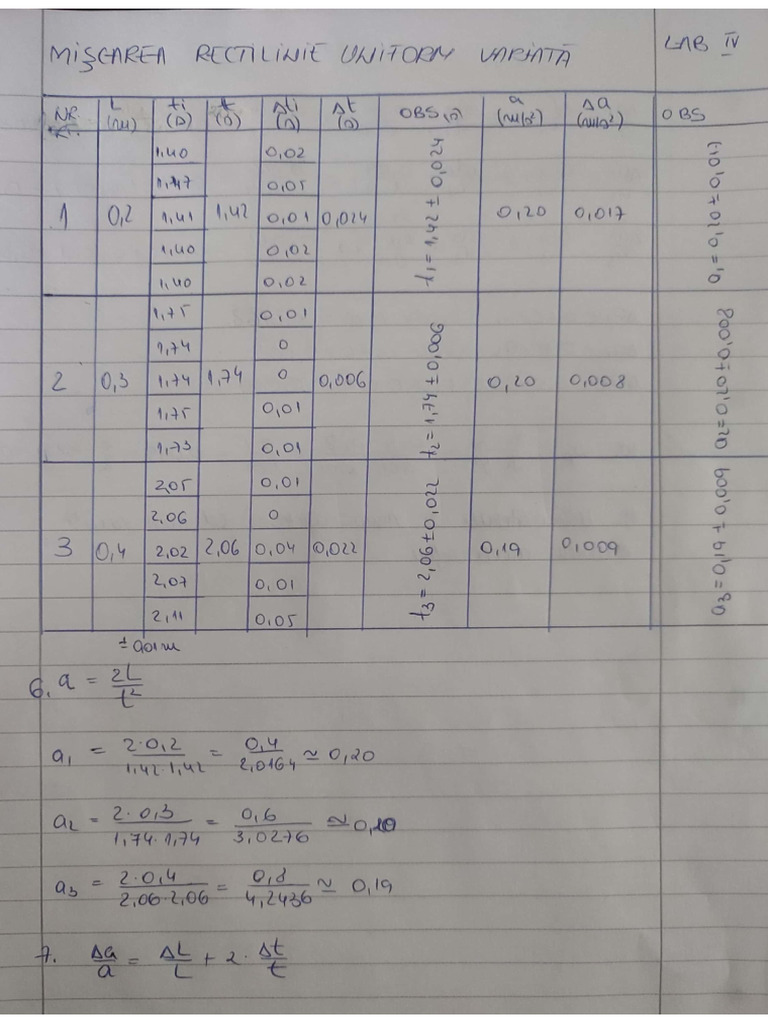 MIȘCAREA RECTILINIE UNIFORM VARIATĂ LAB IV
NR. CRT. L (m) ti (s) t (s) Δti (s) Δt (s) OBS (s) a (m/s²) Δa (m/s²) OBS
1,40 0,02
1,47 0,05
1 0,2 1,41 1,42 0,01 0,024 t1 = 1,42 ± 0,024 0,20 0,017 a1 = 0,20 ± 0,017
1,40 0,02
1,40 0,02
1,75 0,01
1,74 0
2 0,3 1,74 1,74 0 0,006 t2 = 1,74 ± 0,006 0,20 0,008 a2 = 0,20 ± 0,008
1,75 0,01
1,73 0,01
2,05 0,01
2,06 0
3 0,4 2,02 2,06 0,04 0,022 t3 = 2,06 ± 0,022 0,19 0,009 a3 = 0,19 ± 0,009
2,07 0,01
2,11 0,05
± 0,01m
6. a = 2L / t²
a1 = 2·0,2 / 1,42·1,42 = 0,4 / 2,0164 ≃ 0,20
a2 = 2·0,3 / 1,74·1,74 = 0,6 / 3,0276 ≃ 0,20
a3 = 2·0,4 / 2,06·2,06 = 0,8 / 4,2436 ≃ 0,19
7. Δa / a = ΔL / L + 2 · Δt / t